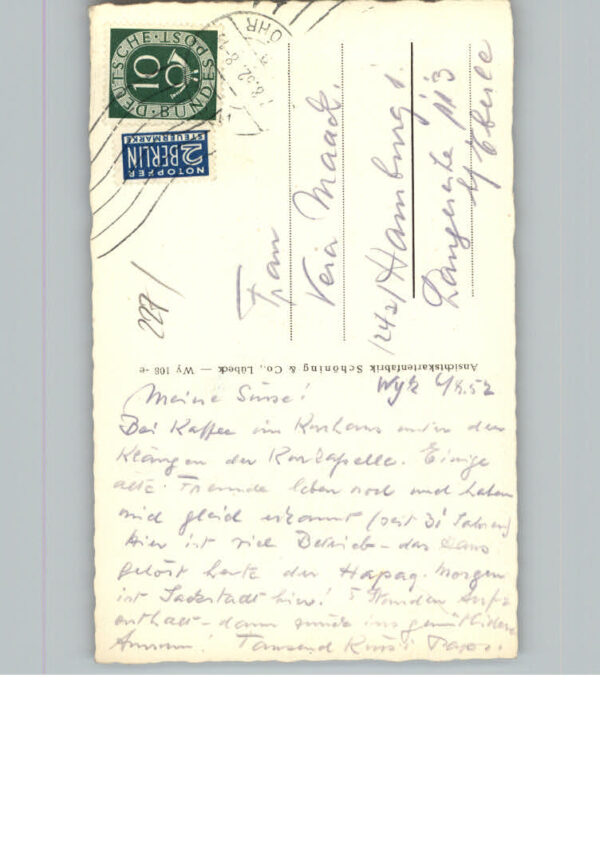 DEUTSCHE·POST
BUNDES
10
NOTOPFER
2 BERLIN
STEUERMARKE
227/
Frau
Vera Maack.
(24a) Hamburg 1.
Langereihe 113
b/ Eberle
Ansichtskartenfabrik Schöning & Co., Lübeck — Wy 108 -e
Wyk 4/8.52
Meine Süsse!
Bei Kaffee im Kurhaus unter den
Klängen der Kurkapelle. Einige
alte Freunde leben noch und haben
mich gleich erkannt (seit 31 Jahren)
Hier ist viel Betrieb - das Haus
gehört heute der Hapag. Morgen
ist hier! 5 Stunden Aufent
enthalt - dann zurück ins gemütlichere
Amrum! Tausend Küsse Papa.